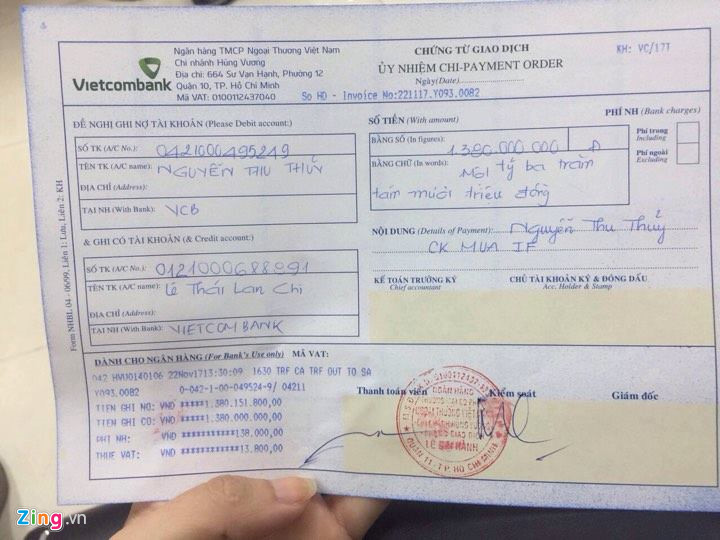 Ngân hàng TMCP Ngoại Thương Việt Nam
Chi nhánh Hùng Vương
Địa chỉ: 664 Sư Vạn Hạnh, Phường 12
Quận 10, TP. Hồ Chí Minh
Mã VAT: 0100112437040
Vietcombank
CHỨNG TỪ GIAO DỊCH
KH: VC/17T
ỦY NHIỆM CHI-PAYMENT ORDER
Ngày(Date)
So HD - Invoice No:221117.Y093.0082
ĐỀ NGHỊ GHI NỢ TÀI KHOẢN (Please Debit account:)
SỐ TK (A/C No.): 0421000495249
TÊN TK (A/C name): NGUYỄN THU THUỶ
ĐỊA CHỈ (Address):
TẠI NH (With Bank): VCB
SỐ TIỀN (With amount)
BẰNG SỐ (In figures): 1.380.000.000 đ
BẰNG CHỮ (In words): Một tỷ ba trăm
tám mươi triệu đồng
PHÍ NH (Bank charges)
Phí trong
Including
Phí ngoài
Excluding
NỘI DUNG (Details of Payment): Nguyễn Thu Thuỷ
CK MUA IF
& GHI CÓ TÀI KHOẢN (& Credit account:)
SỐ TK (A/C No.): 0121000688991
TÊN TK (A/C name): Lê Thái Lan Chi
ĐỊA CHỈ (Address):
TẠI NH (With Bank): VIETCOMBANK
KẾ TOÁN TRƯỞNG KÝ
Chief accountant
CHỦ TÀI KHOẢN KÝ & ĐÓNG DẤU
Acc. Holder & Stamp
Form NHBL 04 - 06/99, Liên 1: Lưu, Liên 2: KH
DÀNH CHO NGÂN HÀNG (For Bank's Use only) MÃ VAT:
042 HVU0140106 22Nov1713:30:09 1630 TRF CA TRF OUT TO SA
Y093.0082 0-042-1-00-049524-9/ 04211
TIEN GHI NO: VND ****1.380.151.800,00
TIEN GHI CO: VND ****1.380.000.000,00
PHI NH: VND **********138.000,00
THUE VAT: VND ***********13.800,00
Thanh toán viên
Kiểm soát
Giám đốc
LÊ ĐẠI HÀNH
QUẬN 11 - T.P. HỒ CHÍ MINH
Zing.vn